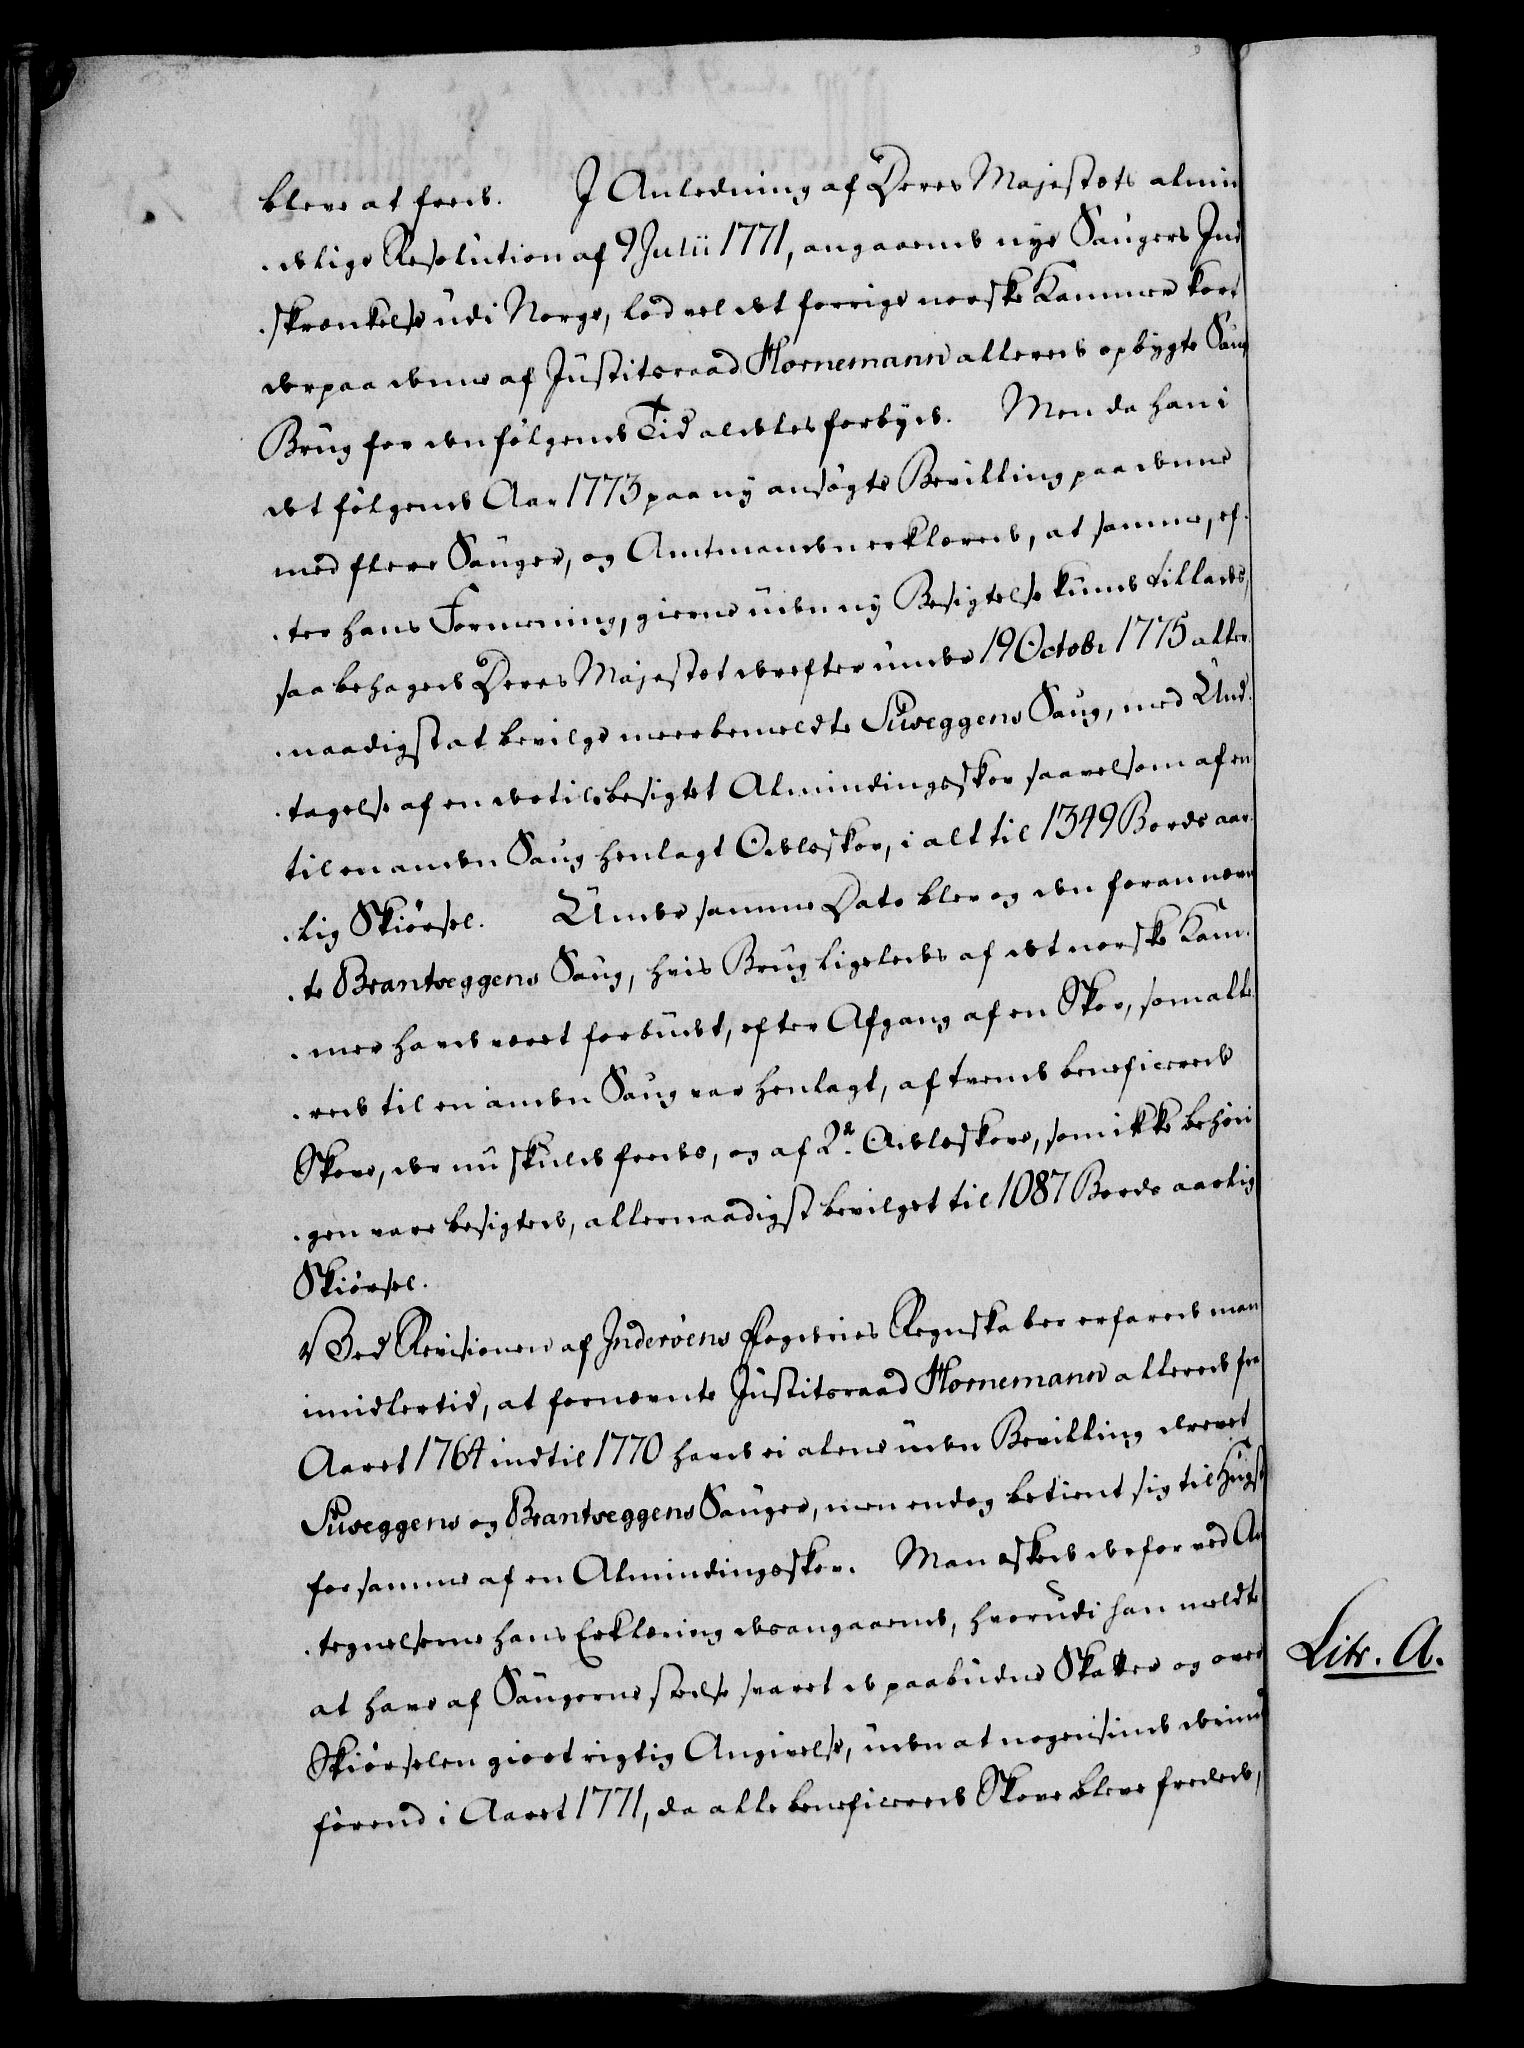 bleve at frede. I Anledning af Deres Majestæts almin
delige Resolution af 9 Julii 1771, angaaende nye Saugers Ind
skrænkelse udi Norge, lod vel det forrige norske Kammer kort
derpaa denne af Justitsraad Hornemann allerede opbygte Saug
Brug for den følgende Tid aldeles forbyde. Men da han i
det følgende Aar 1773 paa ny ansøgte Bevilling paa denne
med flere Sauger, og Amtmanden erklærede, at samme, ef-
ter hans Formening, gierne uden ny Besigtelse kunde tillades,
saa behagede Deres Majestæt derefter under 19 Octobr 1775 aller
naadigst at bevilge meerbemeldte Suveggens Saug, med Und
tagelse af en dertil besigtet Almindingsskov saavelsom af en
til en anden Saug henlagt Odelsskov, i alt til 1349 Borde aar-
lig Skiørsel. Under samme Dato blev og den forannævn
te Brantveggens Saug, hvis Brug ligeledes af det norske Kam-
mer havde været forbudet, efter Afgang af en Skov, som alle
rede til en anden Saug var henlagt, af trende beneficerede
Skove, der nu skulde fredes, og af 2de Odelsskove, som ikke behøri
gen vare besigtede, allernaadigst bevilget til 1087 Borde aarlig
Skiørsel.
Ved Revisionen af Inderøens Fogderies Regnskaber erfarede man
imidlertid, at fornævnte Justitsraad Hornemann allerede fra
Aaret 1764 indtil 1770 havde ei alene uden Bevilling drevet
Suveggens og Brantveggens Sauger, men endog betient sig til Hugst
for samme af en Almindingsskov. Man æskede derfor ved An
tegnelserne hans Erklæring desangaaende, hvorudi han meldte
at have af Saugerne stedse svaret de paabudne Skatter og over
Skiørselen giort rigtig Angivelse, uden at nogensinde derimod
førend i Aaret 1771, da alle beneficerede Skove bleve fredede,
Litr. A.